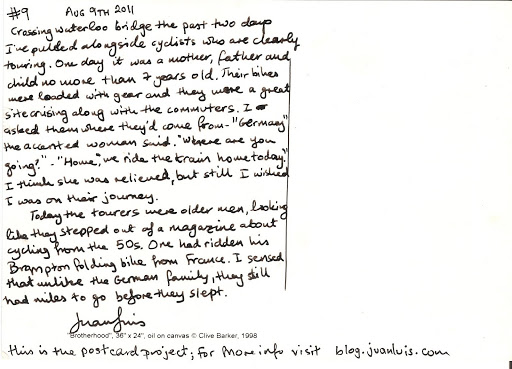 #9 AUG 9TH 2011
Crossing waterloo bridge the past two days
I've pulled alongside cyclists who are clearly
touring. One day it was a mother, father and
child no more than 7 years old. Their bikes
were loaded with gear and they were a great
site cruising along with the commuters. I
asked them where they'd come from - "Germany"
the accented woman said. "Where are you
going?" - "Home", we ride the train home today."
I think she was relieved, but still I wished
I was on their journey.
Today the tourers were older men, looking
like they stepped out of a magazine about
cycling from the 50s. One had ridden his
Brompton folding bike from France. I sensed
that unlike the German family, they still
had miles to go before they slept.
Juan Luis
"Brotherhood", 36" x 24", oil on canvas © Clive Barker, 1998
this is the postcard project; for more info visit blog.juanluis.com